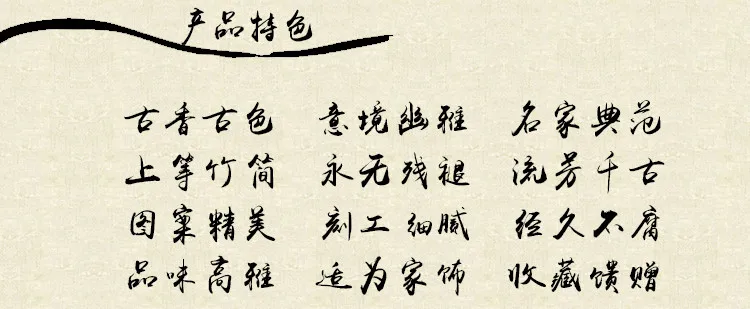 产品特色
古香古色 意境幽雅 名家典范
上等竹简 永无残褪 流芳千古
图案精美 刻工细腻 经久不腐
品味高雅 适为家饰 收藏馈赠